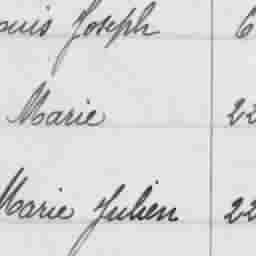 ouis Joseph 6
Marie 22
Marie Julien 22